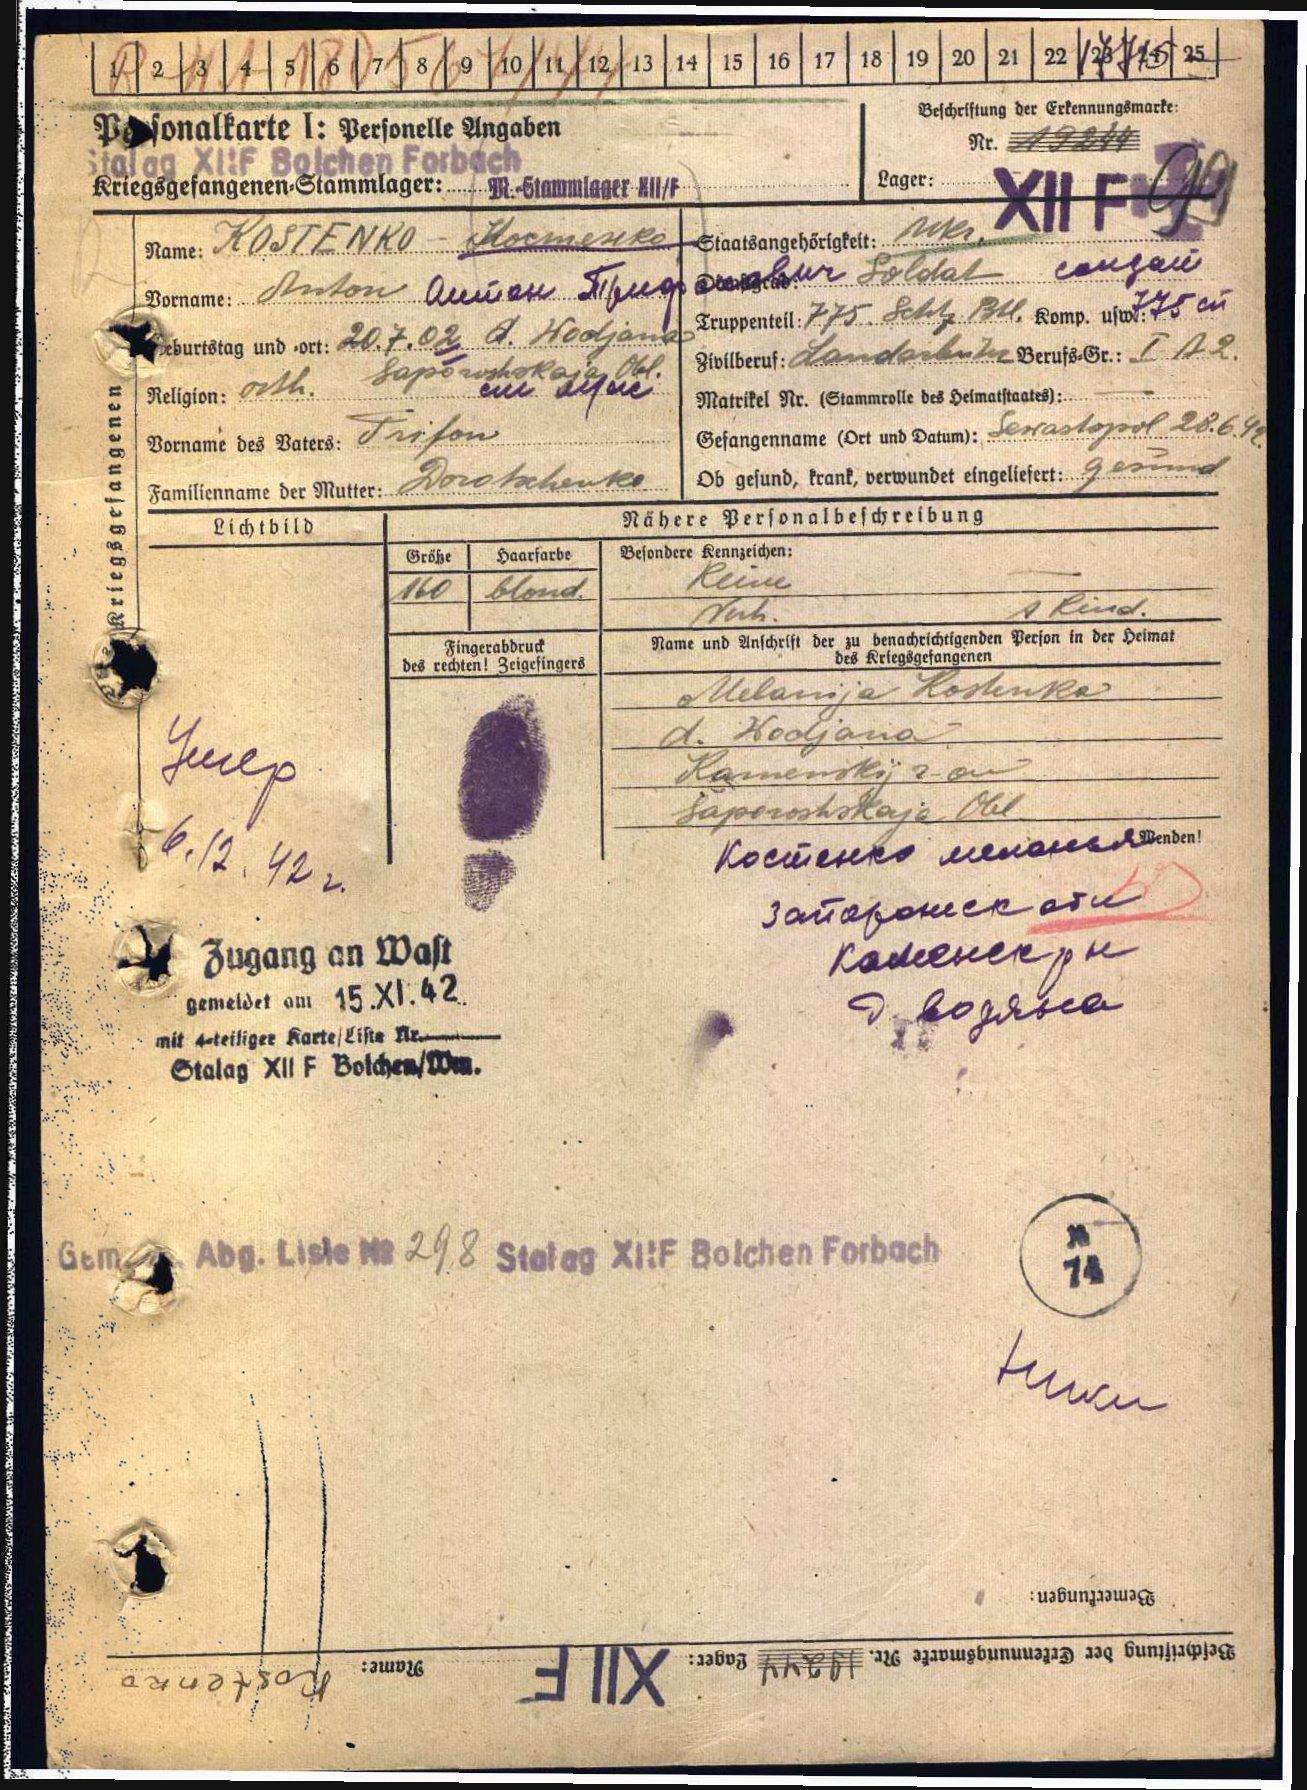 1 2 3 4 5 6 7 8 9 10 11 12 13 14 15 16 17 18 19 20 21 22 23 24 25
Personalkarte I: Personelle Angaben
Stalag XIIF Bolchen Forbach
Kriegsgefangenen-Stammlager: M.-Stammlager XII/F
Beschriftung der Erkennungsmarke:
Nr. 19244
Lager: XII F
Name: KOSTENKO - Костенко
Vorname: Anton Антон
Geburtstag und -ort: 20.7.02 d. Wodjana
Saporoshskaja Obl.
Religion: orth.
Vorname des Vaters: Trifon
Familienname der Mutter: Dorotschenko
Staatsangehörigkeit: Ukr.
Dienstgrad: Soldat солдат
Truppenteil: 775. Schtz Btl. Komp. usw.: 775 сп
Zivilberuf: Landarbeiter Berufs-Gr.: I A 2.
Matrikel Nr. (Stammrolle des Heimatstaates): —
Gefangenname (Ort und Datum): Sewastopol 28.6.42.
Ob gesund, krank, verwundet eingeliefert: gesund
des Kriegsgefangenen
Lichtbild
Nähere Personalbeschreibung
Größe Haarfarbe Besondere Kennzeichen:
160 blond. Keine —
Verh. 1 Kind.
Fingerabdruck
des rechten! Zeigefingers
Name und Anschrift der zu benachrichtigenden Person in der Heimat
des Kriegsgefangenen
Melanija Kostenko
d. Wodjana
Kamenskij r-on
Saporoshskaja Obl.
Wenden!
Умер
6.12.42 г.
Костенко меланья
запорожск обл
Каменск рн
д водяна
Zugang an Wast
gemeldet am 15.XI.42.
mit 4-teiliger Karte/Liste Nr.
Stalag XII F Bolchen/Wm.
Gem. Abg. Liste № 298 Stalag XIIF Bolchen Forbach
74
Bemerkungen:
Beschriftung der Erkennungsmarke Nr. 19244 Lager: XII F Name: Kostenko